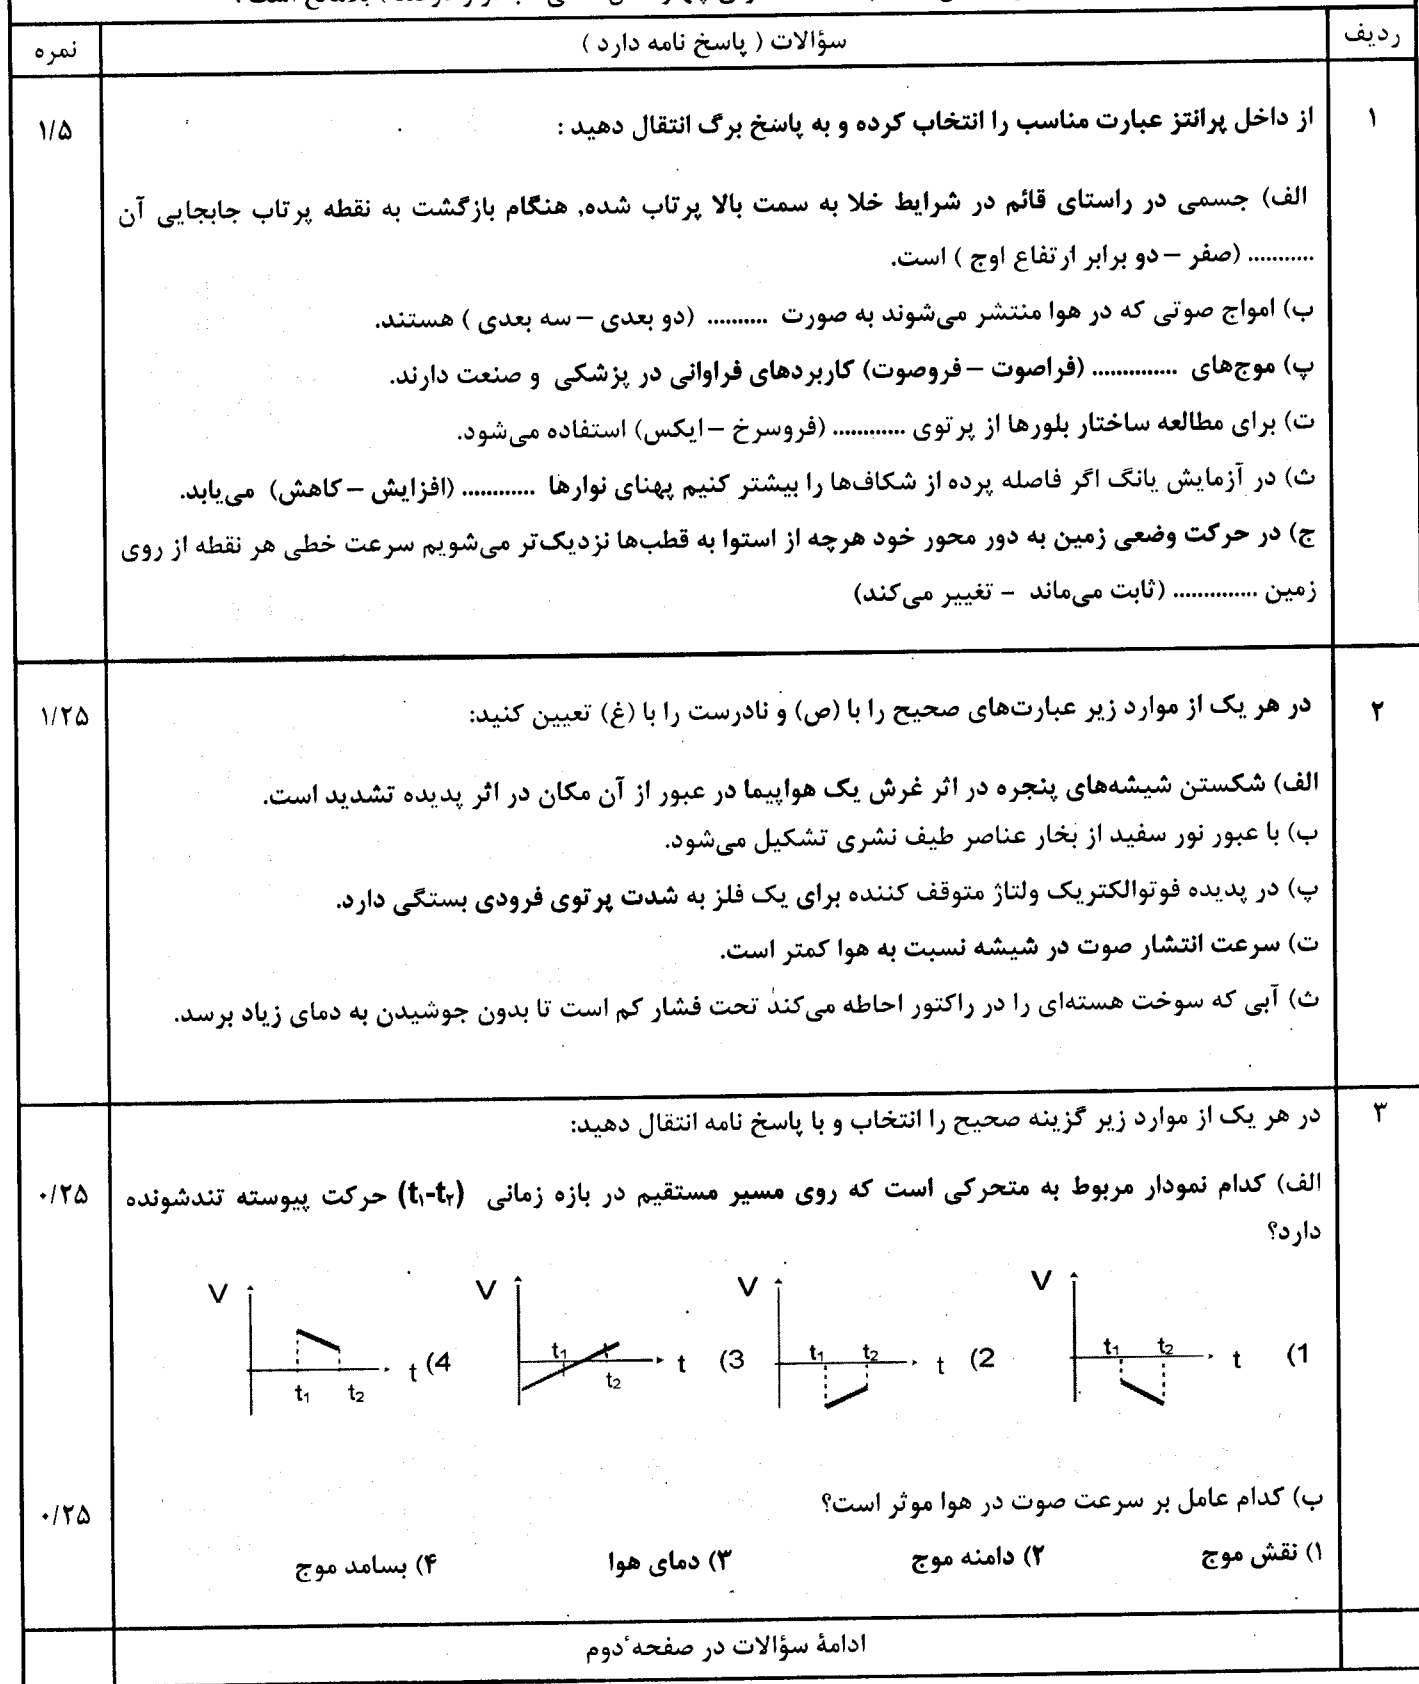 ردیف
سؤالات ( پاسخ نامه دارد )
نمره
۱
از داخل پرانتز عبارت مناسب را انتخاب کرده و به پاسخ برگ انتقال دهید :
۱/۵
الف) جسمی در راستای قائم در شرایط خلا به سمت بالا پرتاب شده, هنگام بازگشت به نقطه پرتاب جابجایی آن
........... (صفر – دو برابر ارتفاع اوج ) است.
ب) امواج صوتی که در هوا منتشر می‌شوند به صورت .......... (دو بعدی – سه بعدی ) هستند.
پ) موج‌های .............. (فراصوت – فروصوت) کاربردهای فراوانی در پزشکی و صنعت دارند.
ت) برای مطالعه ساختار بلورها از پرتوی ............ (فروسرخ – ایکس) استفاده می‌شود.
ث) در آزمایش یانگ اگر فاصله پرده از شکاف‌ها را بیشتر کنیم پهنای نوارها ............ (افزایش – کاهش) می‌یابد.
ج) در حرکت وضعی زمین به دور محور خود هرچه از استوا به قطب‌ها نزدیک‌تر می‌شویم سرعت خطی هر نقطه از روی
زمین .............. (ثابت می‌ماند - تغییر می‌کند)
۲
در هر یک از موارد زیر عبارت‌های صحیح را با (ص) و نادرست را با (غ) تعیین کنید:
۱/۲۵
الف) شکستن شیشه‌های پنجره در اثر غرش یک هواپیما در عبور از آن مکان در اثر پدیده تشدید است.
ب) با عبور نور سفید از بخار عناصر طیف نشری تشکیل می‌شود.
پ) در پدیده فوتوالکتریک ولتاژ متوقف کننده برای یک فلز به شدت پرتوی فرودی بستگی دارد.
ت) سرعت انتشار صوت در شیشه نسبت به هوا کمتر است.
ث) آبی که سوخت هسته‌ای را در راکتور احاطه می‌کند تحت فشار کم است تا بدون جوشیدن به دمای زیاد برسد.
۳
در هر یک از موارد زیر گزینه صحیح را انتخاب و با پاسخ نامه انتقال دهید:
الف) کدام نمودار مربوط به متحرکی است که روی مسیر مستقیم در بازه زمانی (t۱-t۲) حرکت پیوسته تندشونده
۰/۲۵
دارد؟
1) V t t1 t2
2) V t t1 t2
3) V t t1 t2
4) V t t1 t2
ب) کدام عامل بر سرعت صوت در هوا موثر است؟
۰/۲۵
۱) نقش موج ۲) دامنه موج ۳) دمای هوا ۴) بسامد موج
ادامهٔ سؤالات در صفحه دوم